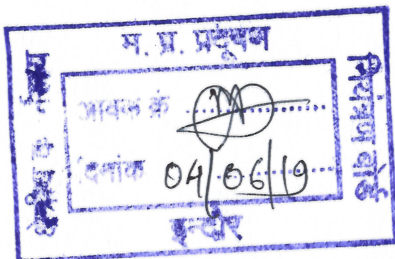 म. प्र. प्रदूषण
नियंत्रण बोर्ड
आवक क्रं ..............
दिनांक 04/06/19
इन्दौर